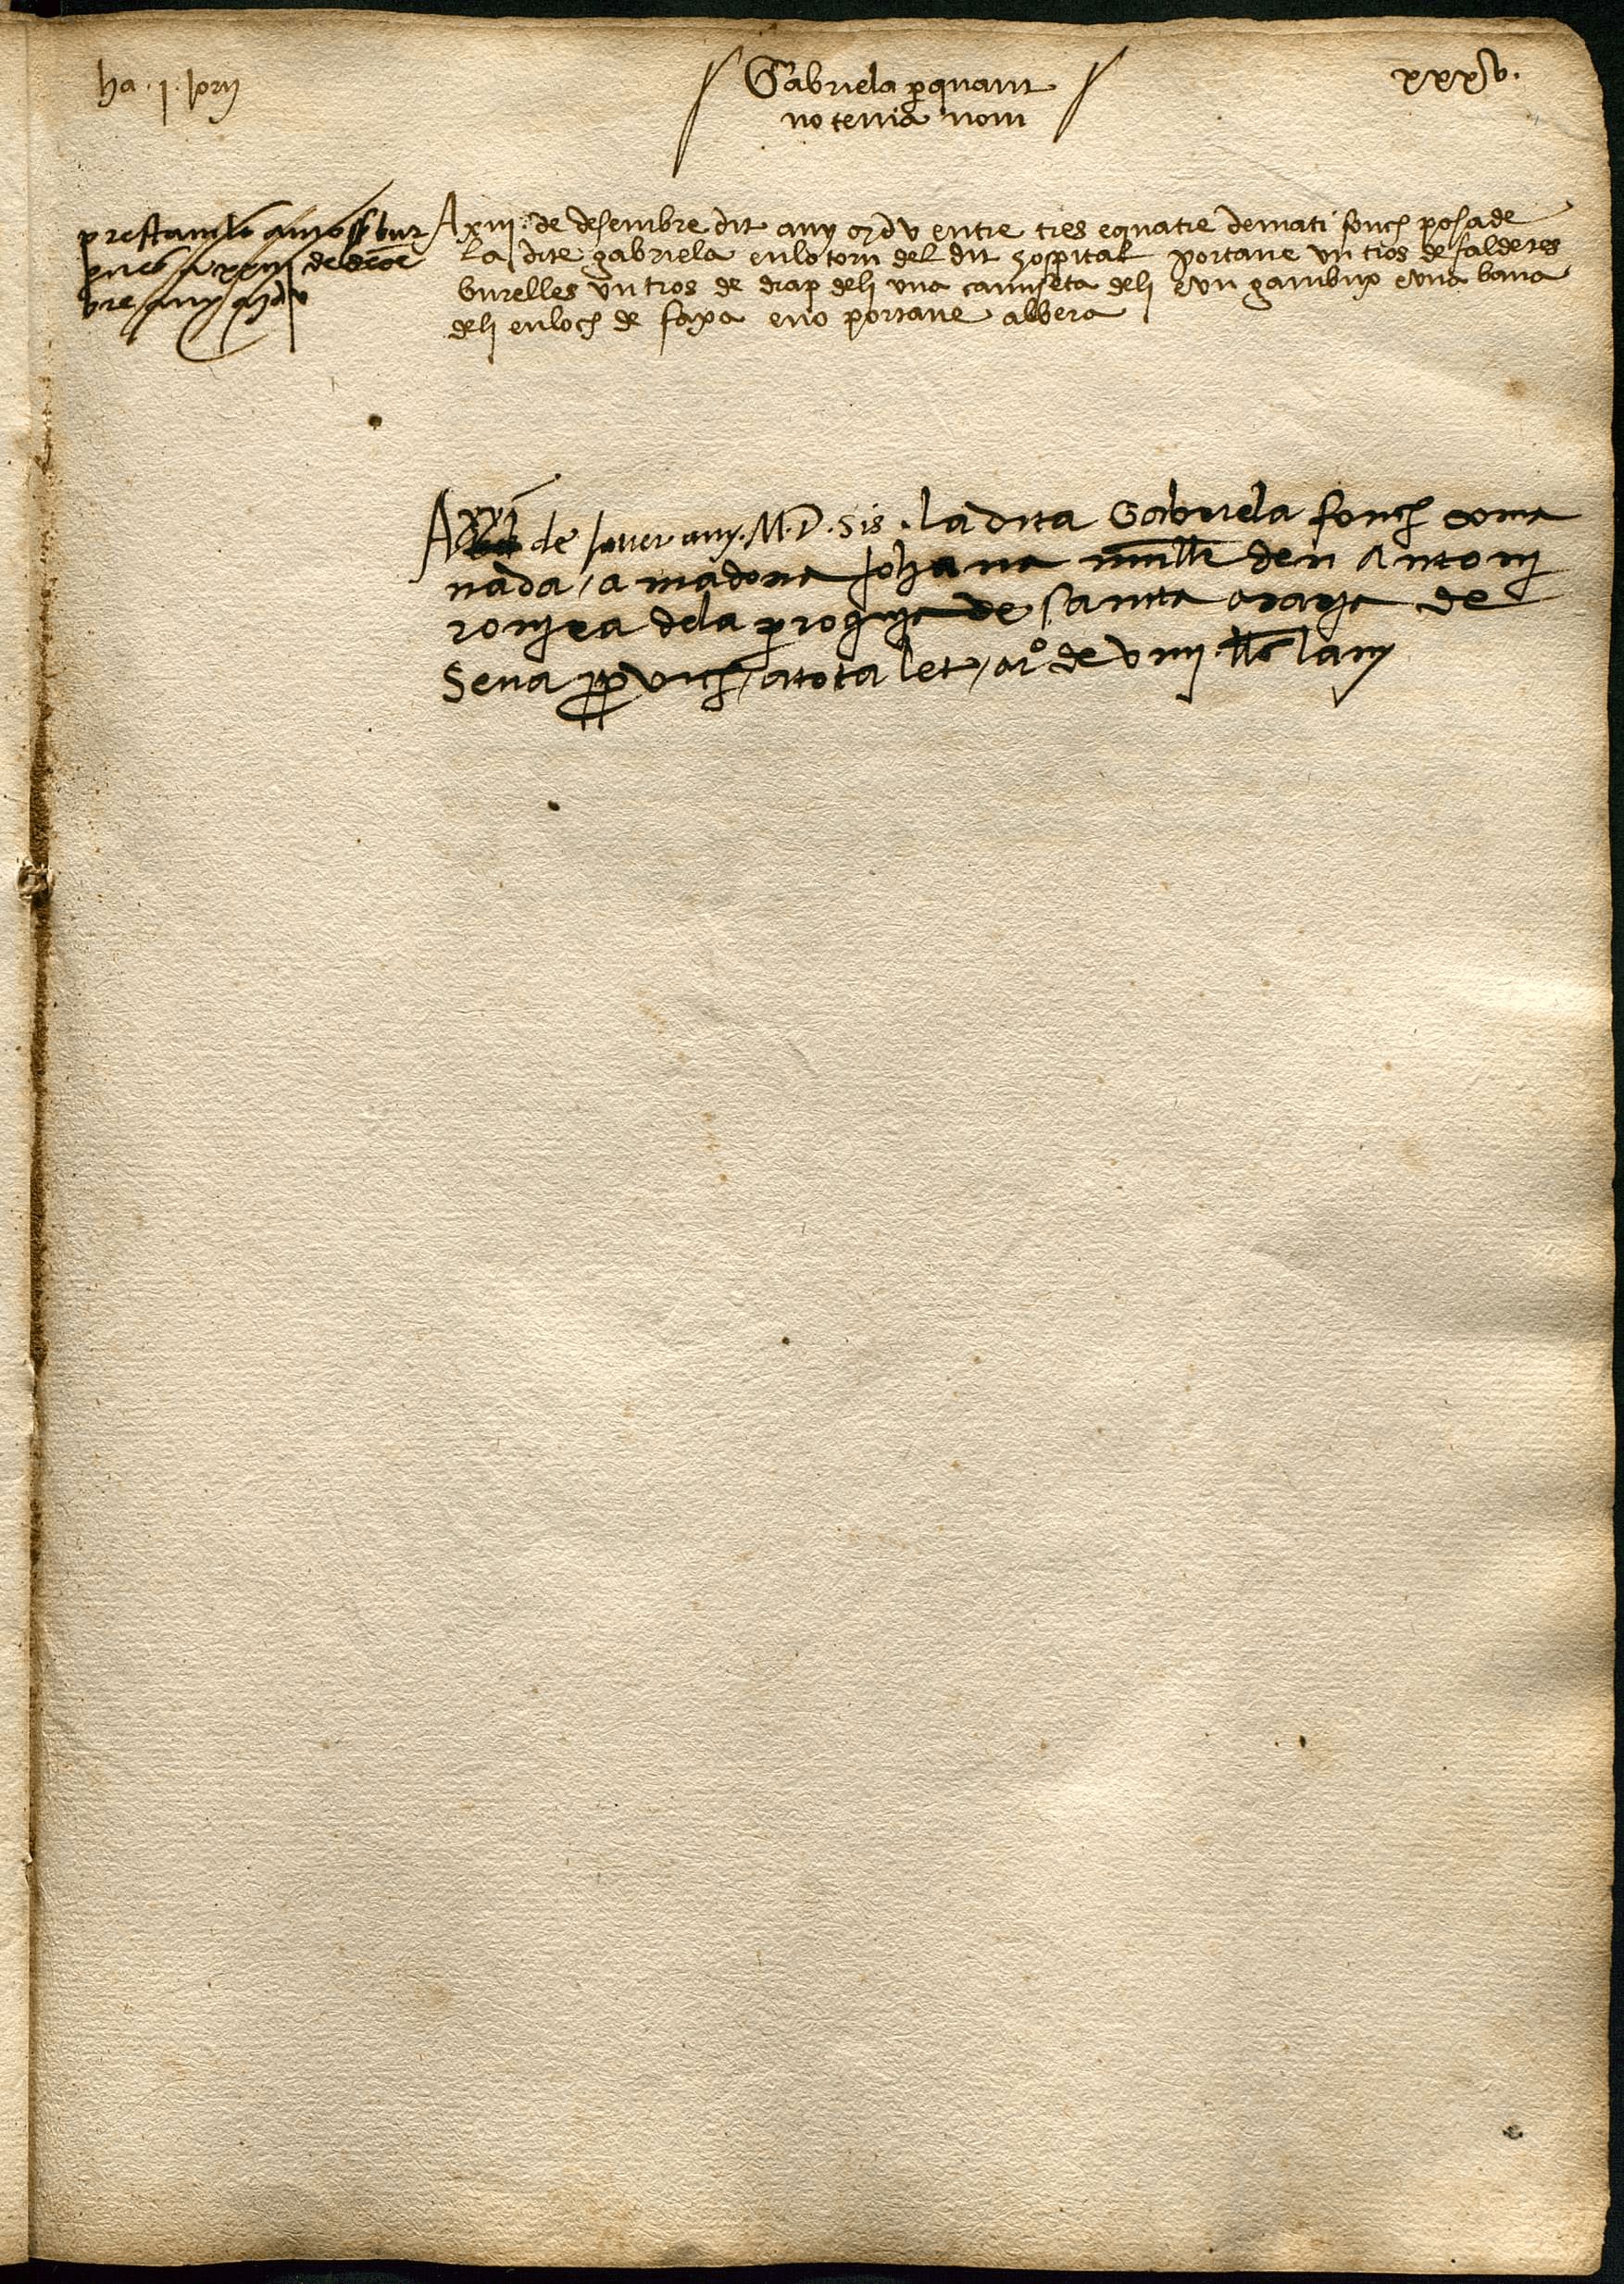 ha . j . jorn
Gabriela perquant
no tenia nom
xxxv.
prestamlo a mossen bur
gues a xxiij de dece
bre any mdv
A xiij de desembre dit any mdv entre tres e quatre demati fonch posade
la dite gabriela en lo torn del dit hospital portave un tros de falderes
burelles un tros de drap deli una camiseta deli e un gambux e una bana
deli en loch de faxa e no portave albera
A xxj de Janer any M.D. sis . la dita Gabriela fonch coma
nada / a madona Johana mulle den Antonj
romjea dela parroquja de sancta maria de
Seua / a tota let / a ro de viiij llrs lany